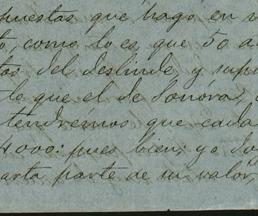 puestas que hago en v
to, como lo es, que 50 a
tas del deslinde, y supo
lo que el de Sonora,
tendremos que cada
4.000: pues bien; yo do
arta parte de su valor,